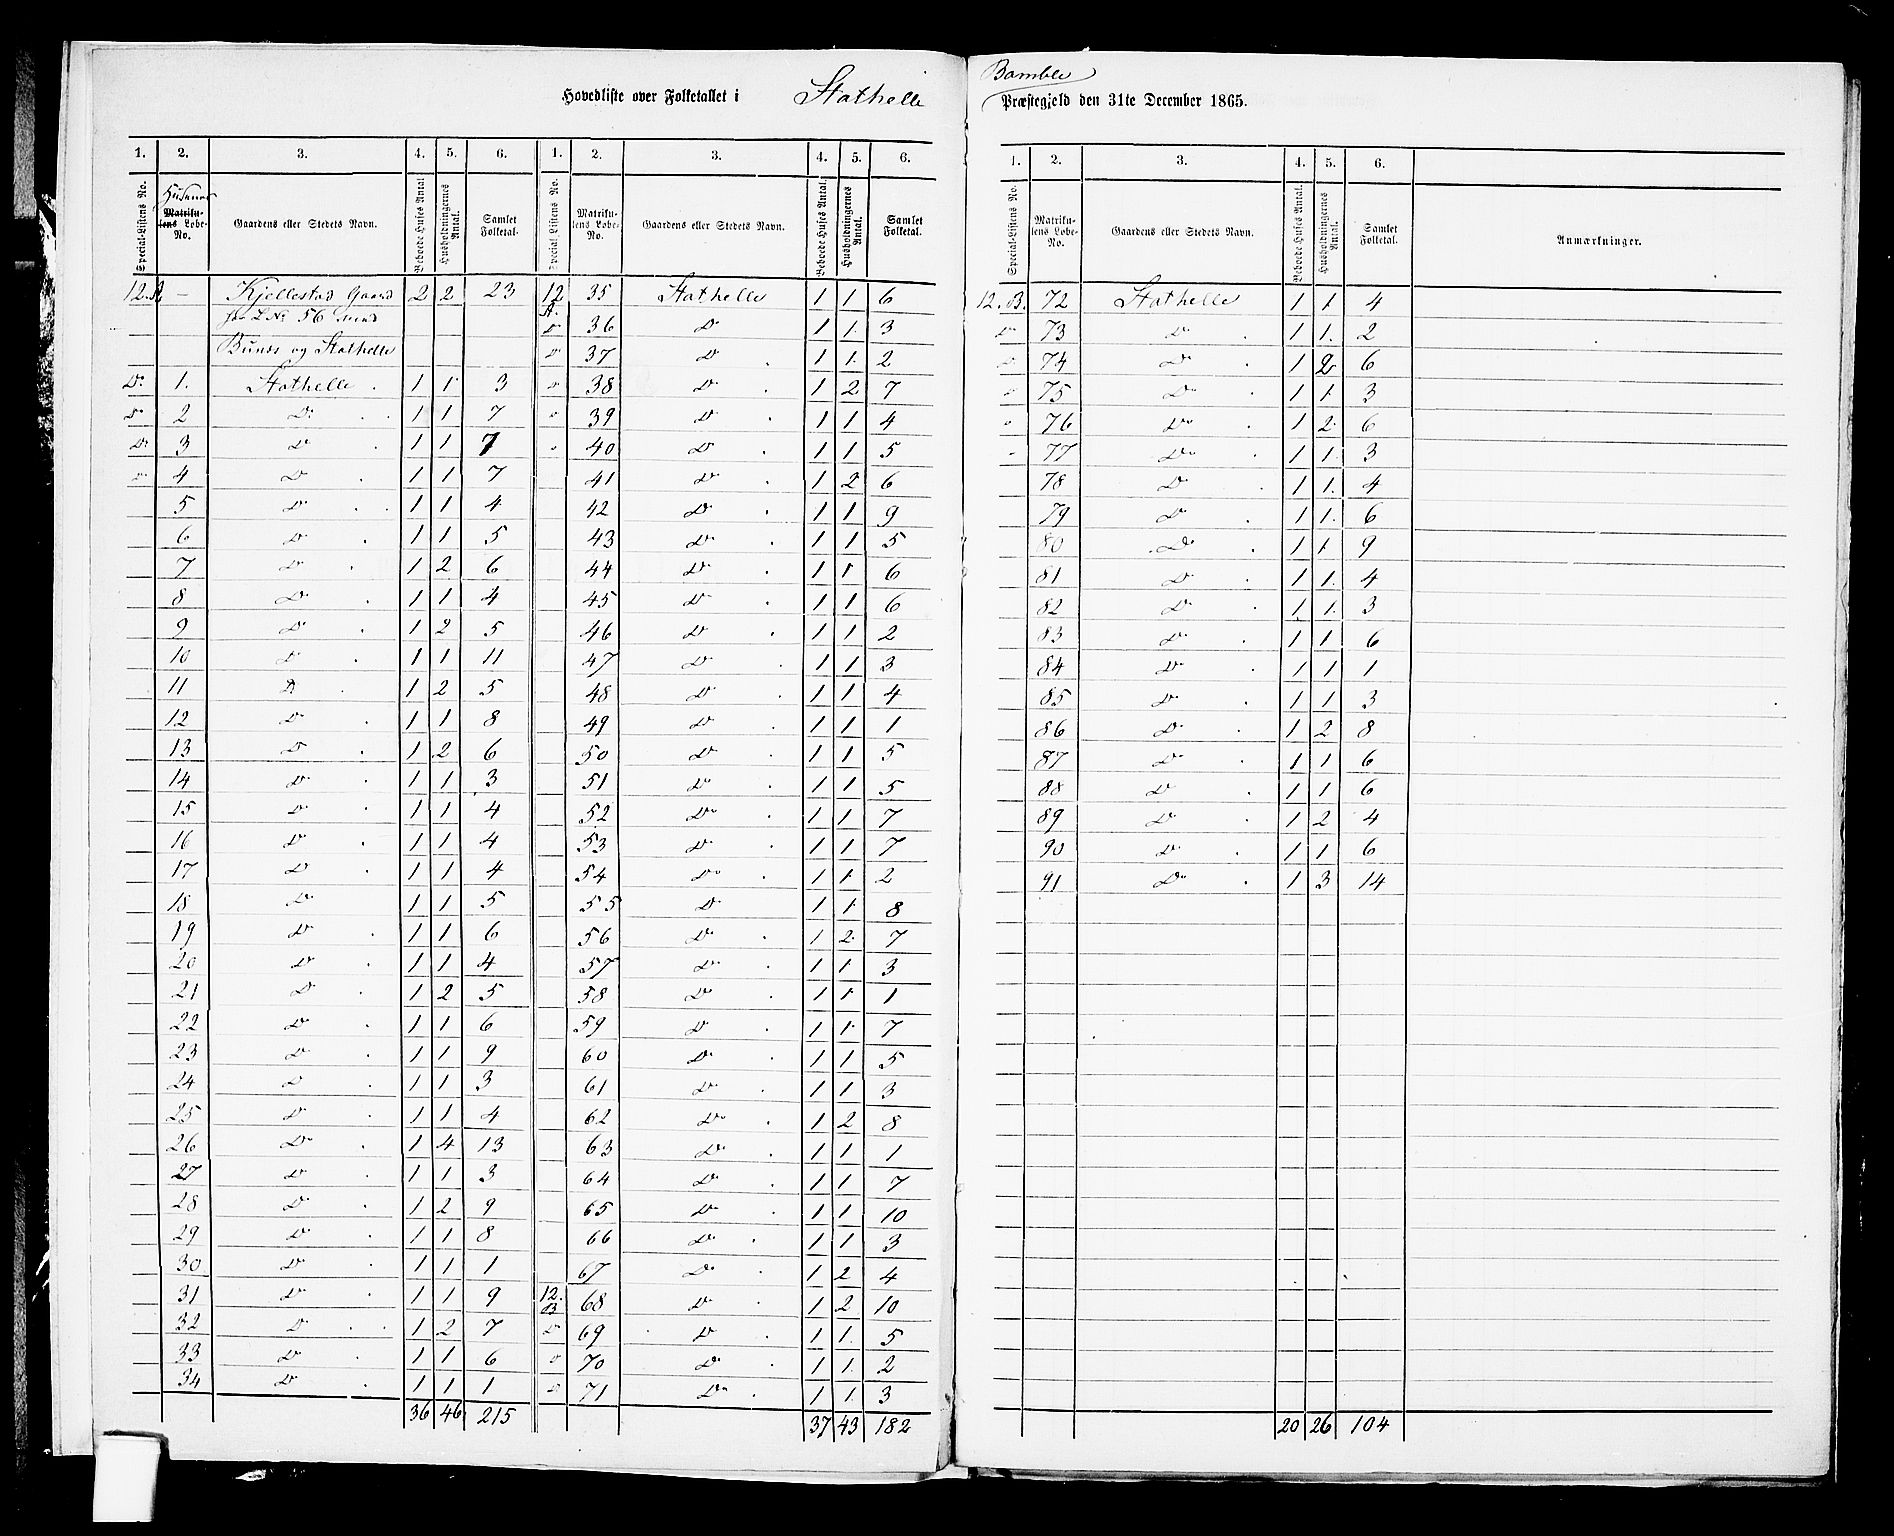 Hovedliste over Folketallet i Stathelle
Bamble
Præstegjeld den 31te December 1865.
1. 2. 3. 4. 5. 6. 1. 2. 3. 4. 5. 6.
Special-Listens No. Husenes Matrikulens Lobe-No. Gaardens eller Stedets Navn. Beboede Huses Antal. Husholdningernes Antal. Samlet Folketal. Special-Listens No. Matrikulens Lobe-No. Gaardens eller Stedets Navn. Beboede Huses Antal. Husholdningernes Antal. Samlet Folketal.
12.A – Kjellestad Gaard 2 2 23
56
Bunes og Stathelle
Do 1. Stathelle 1 1 3
Do 2 Do 1 1 7
Do 3 Do 1 1 7
Do 4 Do 1 1 7
5 Do 1 1 4
6 Do 1 1 5
7 Do 1 2 6
8 Do 1 1 4
9 Do 1 2 5
10 Do 1 1 11
11 Do 1 2 5
12 Do 1 1 8
13 Do 1 2 6
14 Do 1 1 3
15 Do 1 1 4
16 Do 1 1 4
17 Do 1 1 4
18 Do 1 1 5
19 Do 1 1 6
20 Do 1 1 4
21 Do 1 2 5
22 Do 1 1 6
23 Do 1 1 9
24 Do 1 1 3
25 Do 1 1 4
26 Do 1 4 13
27 Do 1 1 3
28 Do 1 2 9
29 Do 1 1 8
30 Do 1 1 1
31 Do 1 1 9
32 Do 1 2 7
33 Do 1 1 6
34 Do 1 1 1
36 46 215
12 A. 35 Stathelle 1 1 6
Do 36 Do 1 1. 3
Do 37 Do 1 1. 2
o 38 Do 1 2 7
o 39 Do 1 1 4
o 40 Do 1 1 5
41 Do 1 2 6
42 Do 1 1 9
43 Do 1 1 5
44 Do 1 1 6
45 Do 1 1 6
46 Do 1 1 2
47 Do 1 1 3
48 Do 1 1 4
49 Do 1 1 1
50 Do 1 1 5
51 Do 1 1 5
52 Do 1 1 7
53 Do 1 1 7
54 Do 1 1 2
55 Do 1 1. 8
56 Do 1 2. 7
57 Do 1 1. 3
58 Do 1 1 1
59 Do 1 1 7
60 Do 1 1 5
61 Do 1 1 3
62 Do 1 2 8
63 Do 1 1 1
64 Do 1 1 7
65 Do 1 1 10
66 Do 1 1 3
67 Do 1 2 4
12. B 68 Do 1 2 10
Do 69 Do 1 1. 5
o 70 Do 1 1. 2
o 71 Do 1 1. 3
37 43 182
1. 2. 3. 4. 5. 6.
Special-Listens No. Matrikulens Lobe-No. Gaardens eller Stedets Navn. Beboede Huses Antal. Husholdningernes Antal. Samlet Folketal. Anmærkninger.
12. B. 72 Stathelle 1 1. 4
Do 73 Do 1 1. 2
o 74 Do 1 2 6
o 75 Do 1 1. 3
o 76 Do 1 2. 6
77 Do 1 1. 3
78 Do 1 1. 4
79 Do 1 1. 6
80 Do 1 1 9
81 Do 1 1. 4
82 Do 1 1. 3
83 Do 1 1 6
84 Do 1 1 1
85 Do 1 1 3
86 Do 1 2 8
87 Do 1 1 6
88 Do 1 1 6
89 Do 1 2 4
90 Do 1 1 6
91 Do 1 3 14
20 26 104